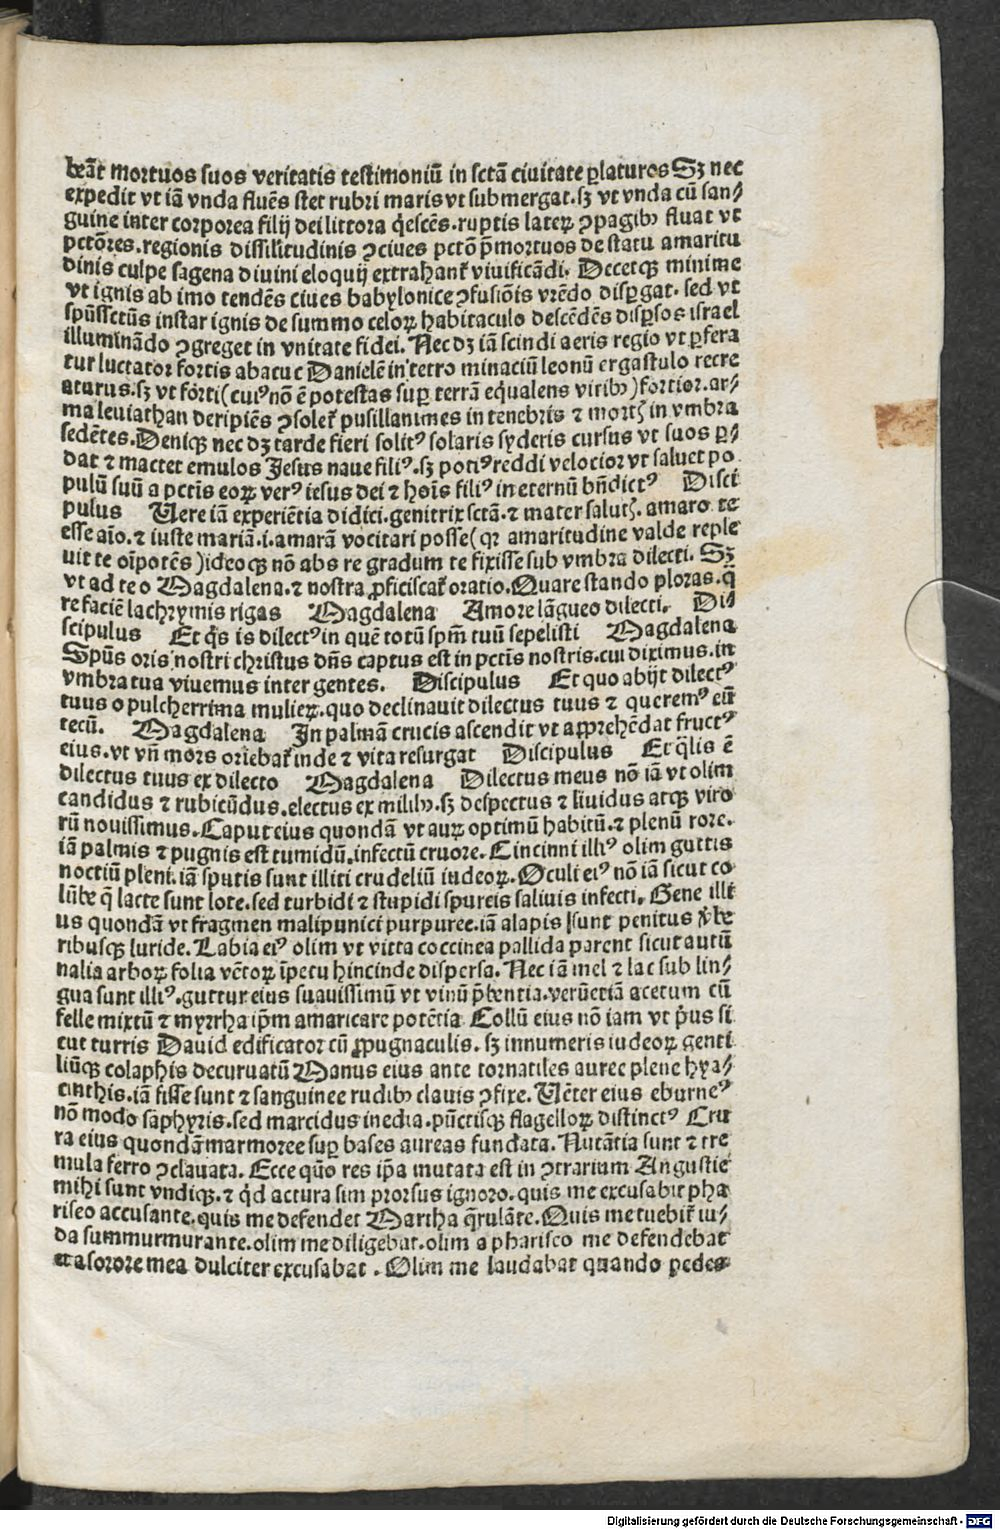 beãt mortuos suos veritatis testimoniũ in sctã ciuitate ꝑlaturos Sꝫ nec
expedit vt iã vnda fluẽs stet rubri maris vt submergat. sꝫ vt vnda cũ san⸗
guine inter corporea filij dei littora q̃escẽs. ruptis lateꝝ ꝯpagibꝰ fluat vt
pctõres. regionis dissilitudinis ꝯciues pctõ p̃mortuos de statu amaritu
dinis culpe sagena diuini eloquij extrahant᷑ viuificãdi. Decetqꝫ minime
vt ignis ab imo tendẽs ciues babylonice ꝯfusiõis vrẽdo disꝑgat. sed vt
spũssctũs instar ignis de summo celoꝝ habitaculo descẽdẽs disꝑsos israel
illuminãdo ꝯgreget in vnitate fidei. Nec dꝫ iã scindi aeris regio vt ꝑfera
tur luctator fortis abacuc Danielẽ in tetro minaciũ leonũ ergastulo recre
aturus. sꝫ vt forti (cuiꝰ nõ ẽ potestas suꝑ terrã equalens viribꝰ) fortior. ar⸗
ma leuiathan deripiẽs ꝯsolet᷑ pusillanimes in tenebris ⁊ mortꝭ in vmbra
sedẽtes. Deniqꝫ nec dꝫ tarde fieri solitꝰ solaris syderis cursus vt suos ꝑ⸗
dat ⁊ mactet emulos Jesus naue filiꝰ. sꝫ potiꝰ reddi velocior vt saluet po
pulũ suũ a pctĩs eoꝝ verꝰ iesus dei ⁊ hoĩs filiꝰ in eternũ bñdictꝰ Disci
pulus Uere iã experiẽtia didici. genitrix sctã. ⁊ mater salutꝭ. amaro te
esse aĩo. ⁊ iuste mariã. i. amarã vocitari posse (qꝛ amaritudine valde reple
uit te oĩpotẽs) ideoqꝫ nõ abs re gradum te fixisse sub vmbra dilecti. Sꝫ
vt ad te o Magdalena. ⁊ nostra ꝓficiscat᷑ oratio. Quare stando ploras. q̃
re faciẽ lachrymis rigas Magdalena Amore lãgueo dilecti. Di⸗
scipulus Et q̃s is dilectꝰ in quẽ totũ spm̃ tuũ sepelisti Magdalena
Spũs oris nostri christus dñs captus est in pctĩs nostris. cui diximus. in
vmbra tua viuemus inter gentes. Discipulus Et quo abijt dilectꝰ
tuus o pulcherrima mulieꝝ. quo declinauit dilectus tuus ⁊ queremꝰ eũ
tecũ. Magdalena In palmã crucis ascendit vt apprehẽdat fructꝰ
eius. vt vñ mors oriebat᷑ inde ⁊ vita resurgat Discipulus Et q̃lis ẽ
dilectus tuus ex dilecto Magdalena Dilectus meus nõ iã vt olim
candidus ⁊ rubicũdus. electus ex milibꝰ. sꝫ despectus ⁊ liuidus atqꝫ viro
rũ nouissimus. Caput eius quondã vt auꝝ optimũ habitũ. ⁊ plenũ rore.
iã palmis ⁊ pugnis est tumidũ. infectũ cruore. Cincinni illiꝰ olim guttis
noctiũ pleni. iã sputis sunt illiti crudeliũ iudeoꝝ. Oculi eiꝰ nõ iã sicut co
lũbe q̃ lacte sunt lote. sed turbidi ⁊ stupidi spureis saliuis infecti. Gene illi
us quondã vt fragmen malipunici purpuree. iã alapis sunt penitus ꝟbe
ribusqꝫ luride. Labia eiꝰ olim vt vitta coccinea pallida parent sicut autũ
nalia arboꝝ folia vẽtoꝝ ĩpetu hincinde dispersa. Nec iã mel ⁊ lac sub lin⸗
gua sunt illiꝰ. guttur eius suauissimũ vt vinũ p̃bentia. verũetiã acetum cũ
felle mixtũ ⁊ myrrha ip̃m amaricare potẽtia Collũ eius nõ iam vt p̃us si
cut turris Dauid edificator cũ ꝓpugnaculis. sꝫ innumeris iudeoꝝ genti
liũqꝫ colaphis decuruatũ Manus eius ante tornatiles auree plene hya⸗
cinthis. iã fisse sunt ⁊ sanguinee rudibꝰ clauis ꝯfixe. Uẽter eius eburneꝰ
nõ modo saphyris. sed marcidus inedia. pũctisqꝫ flagelloꝝ distinctꝰ Cru
ra eius quondã marmoree suꝑ bases aureas fundata. Nutãtia sunt ⁊ tre
mula ferro ꝯclauata. Ecce quõ res ip̃a mutata est in ꝯtrarium Angustie
mihi sunt vndiqꝫ. ⁊ q̃d actura sim prorsus ignoro. quis me excusabit pha
riseo accusante. quis me defendet Martha q̃rulãte. Quis me tuebit᷑ iu⸗
da summurmurante. olim me diligebat. olim a pharisco me defendebat
et a sorore mea dulciter excusabat. Olim me laudabat quando pedes
Digitalisierung gefördert durch die Deutsche Forschungsgemeinschaft - DFG